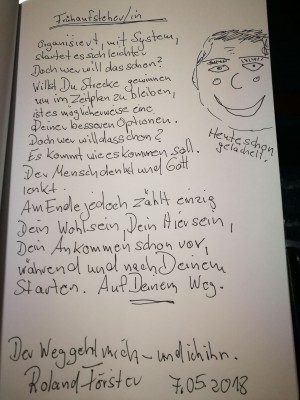 Frühaufsteher/in
Organisiert, mit System,
startet es sich leichter
Doch wer will das schon?
Willst Du Strecke gewinnen
um im Zeitplan zu bleiben,
ist es möglicherweise eine
Deiner besseren Optionen.
Doch wer will das schon?
Es kommt wie es kommen soll.
Der Mensch denkt und Gott
lenkt.
Am Ende jedoch zählt einzig
Dein Wohlsein, Dein Hiersein,
Dein Ankommen schon vor,
während und nach Deinem
Starten. Auf Deinem Weg.
Heute schon
gelächelt.
Der Weg geht mich - und ich ihn.
Roland Förster 7.05.2018